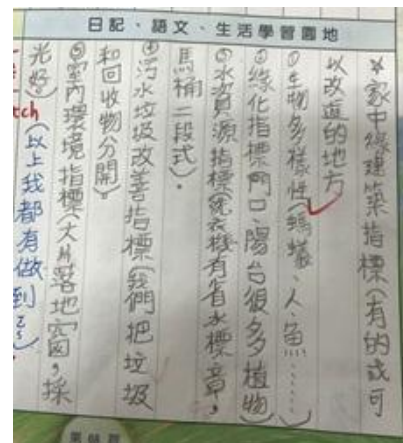 日記、語文、生活學習園地
※家中綠建築指標(有的或可
以改進的地方
①生物多樣性(螞蟻、人、魚……)
②綠化指標(門口、陽台很多植物)
③水資源指標(洗衣機有省水標章,
馬桶二段式)。
④污水垃圾改善指標(我們把垃圾
和回收物分開)。
⑤室內環境指標(大片落地窗,採
光好)
(以上我都有做到
tch